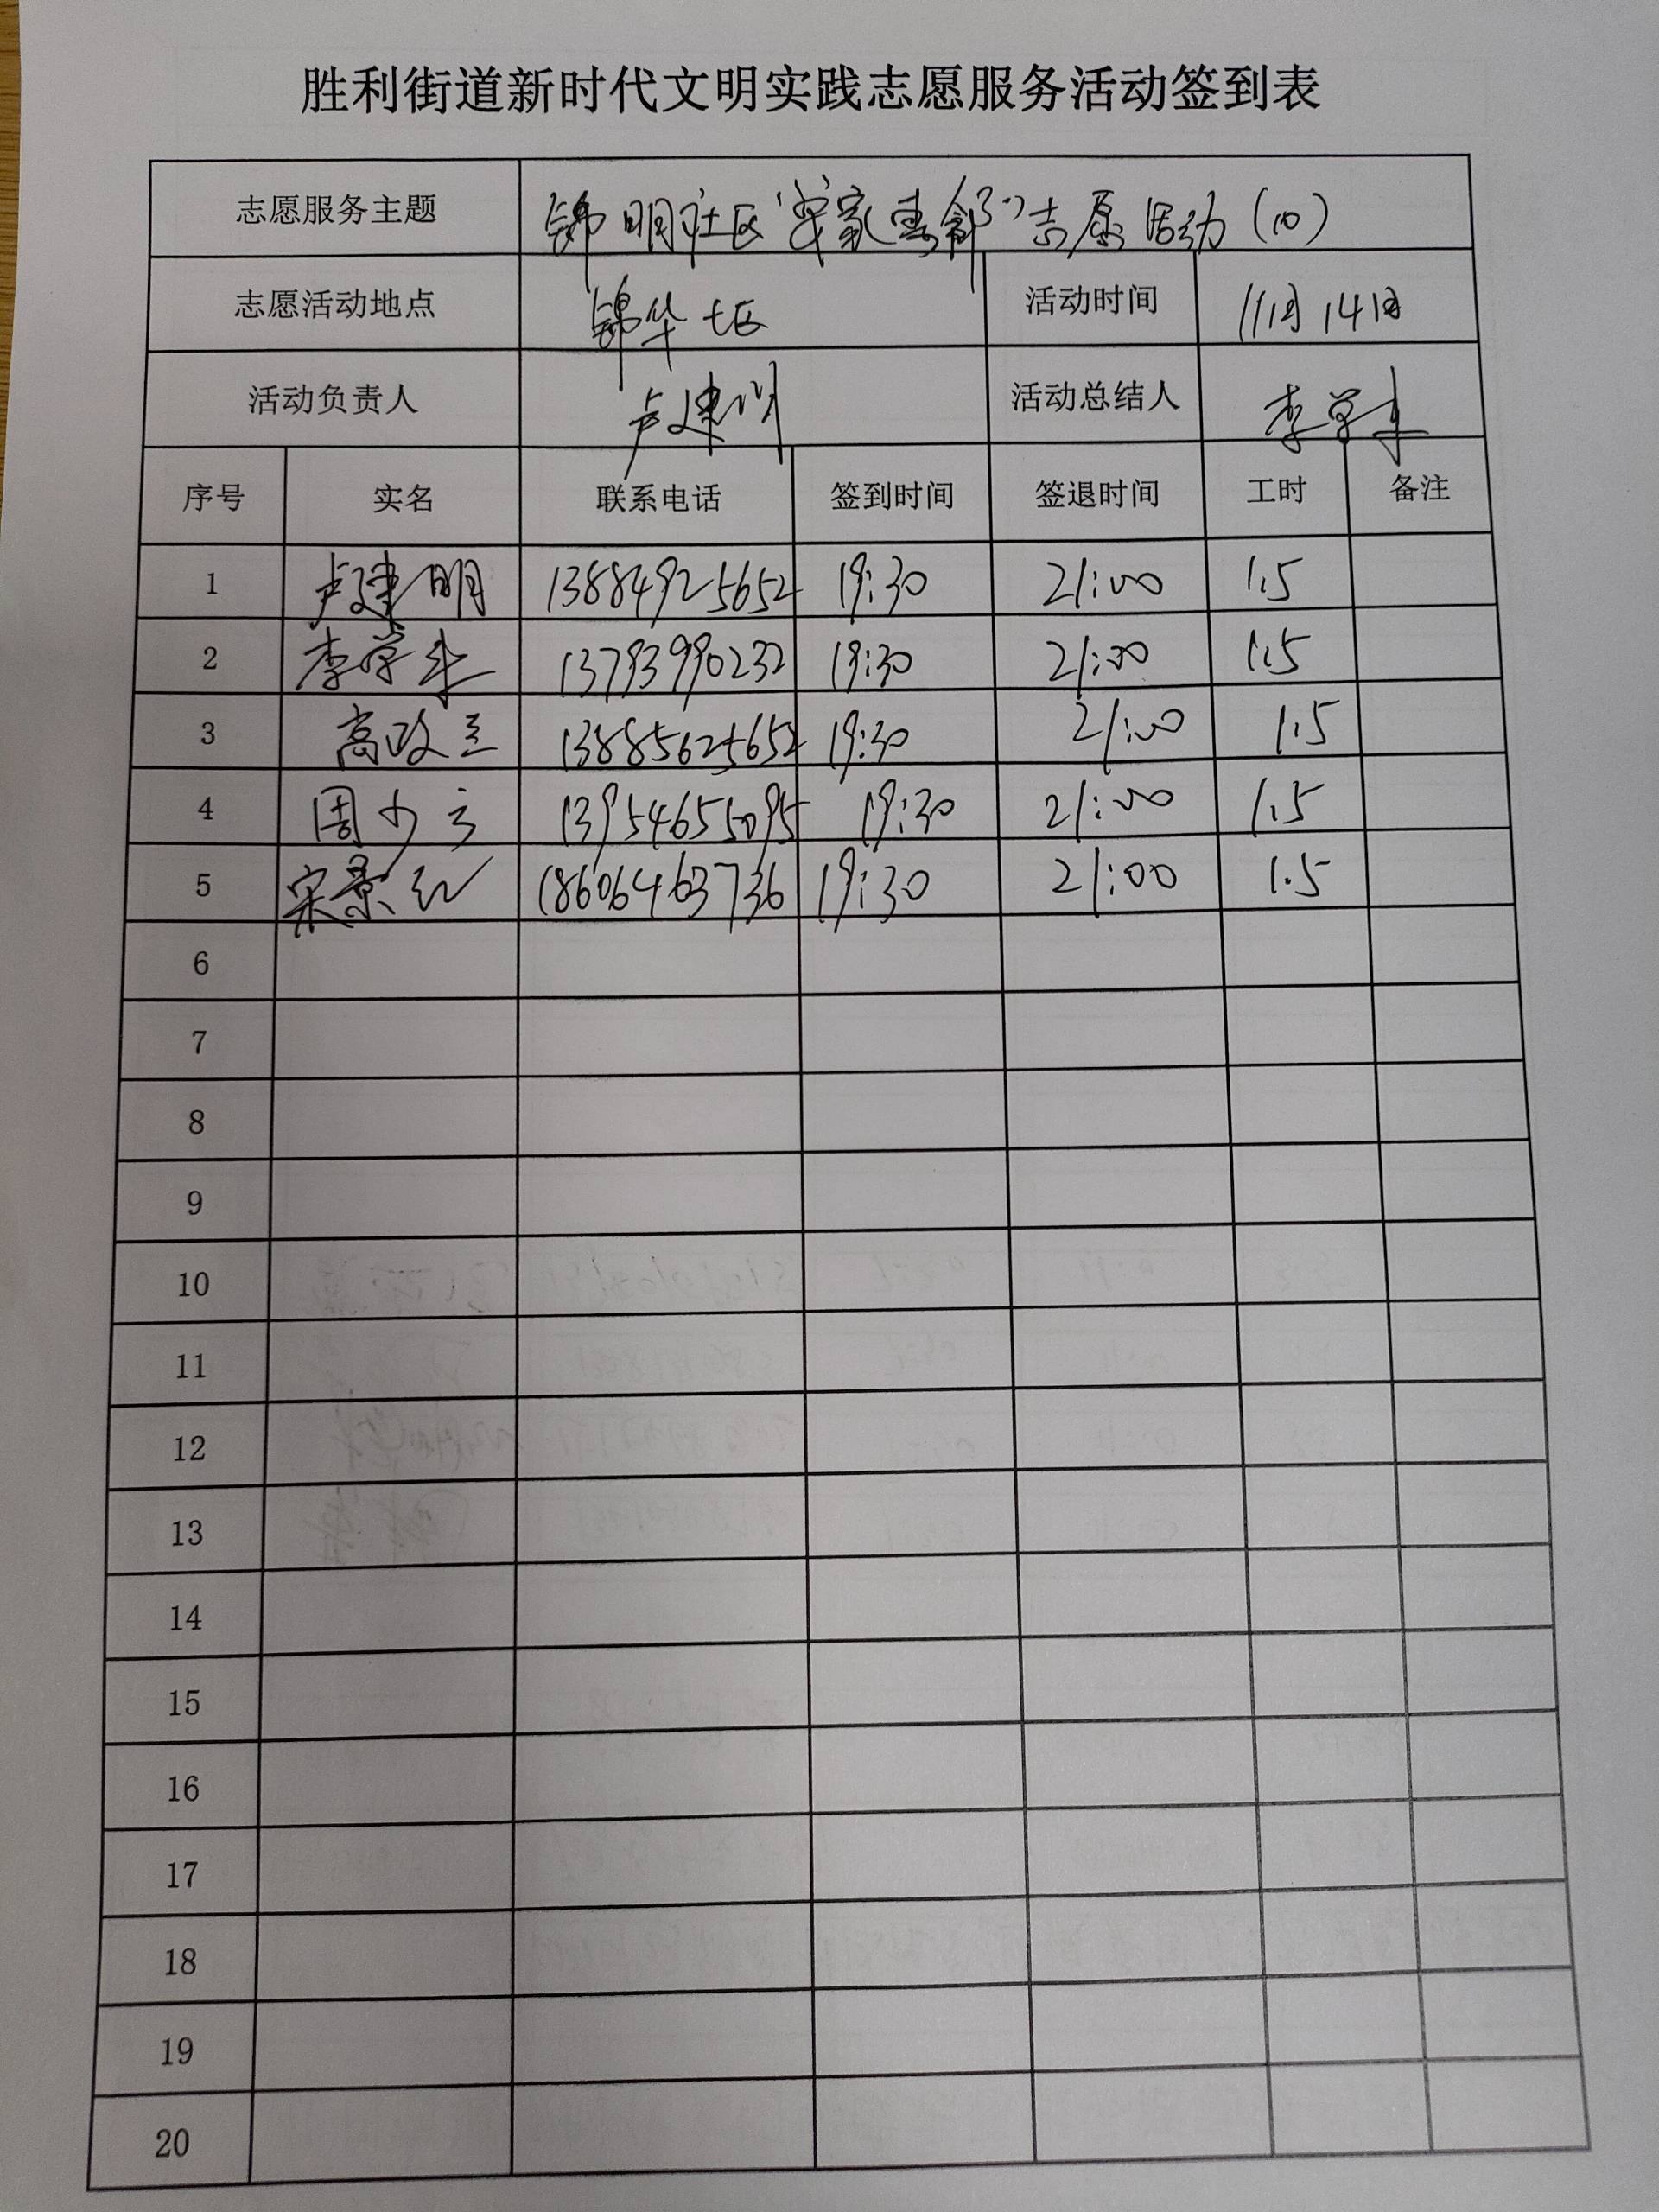 胜利街道新时代文明实践志愿服务活动签到表
志愿服务主题 锦明社区"安家惠邻"志愿活动(四)
志愿活动地点 锦华七区 活动时间 11月14日
活动负责人 卢建明 活动总结人 李学丰
序号 实名 联系电话 签到时间 签退时间 工时 备注
1 卢建明 13884925652 19:30 21:00 1.5
2 李学 13793990232 19:30 21:00 1.5
3 高政 13885625652 19:30 21:00 1.5
4 周少云 13954655095 19:30 21:00 1.5
5 宋景红 18606463736 19:30 21:00 1.5
6
7
8
9
10
11
12
13
14
15
16
17
18
19
20